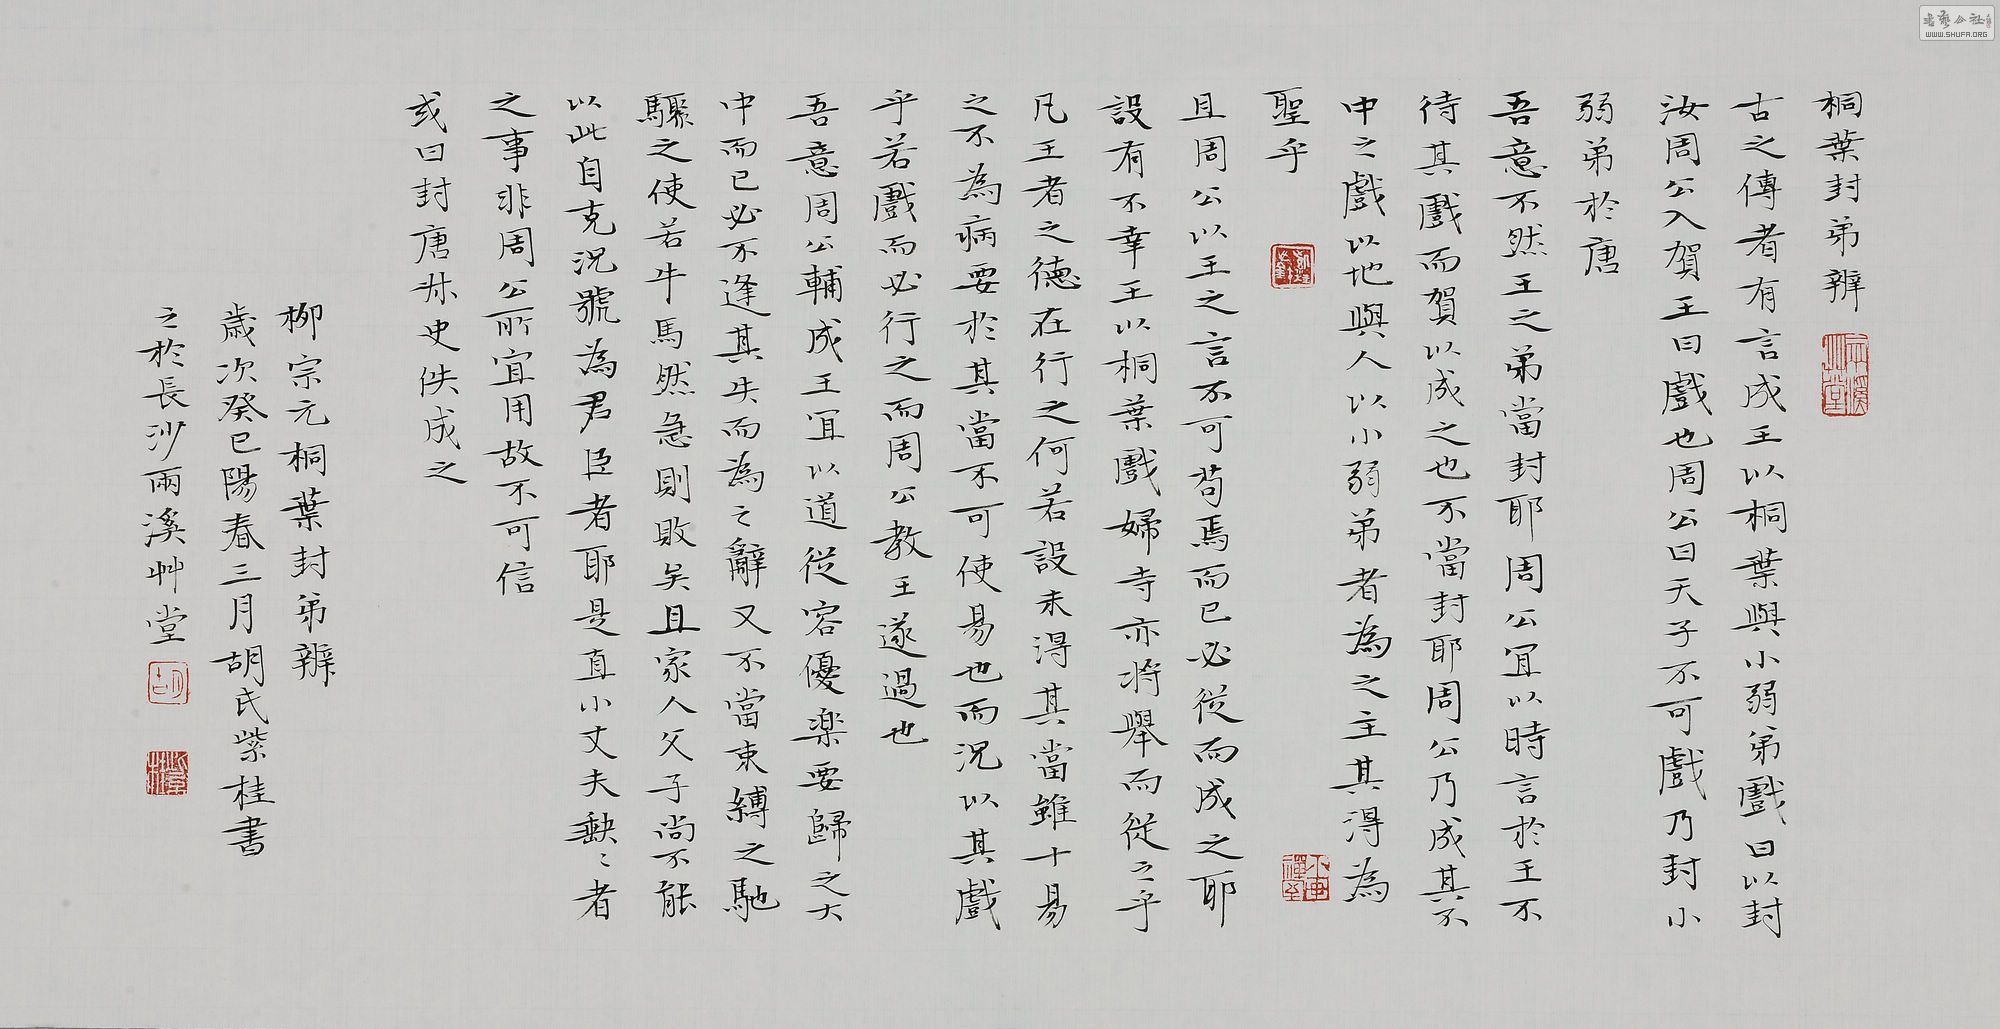 桐葉封弟辦
古之傳者有言成王以桐葉與小弱弟戲曰以封
汝周公入賀王曰戲也周公曰天子不可戲乃封小
弱弟於唐
吾意不然王之弟當封耶周公宜以時言於王不
待其戲而賀以成之也不當封耶周公乃成其不
中之戲以地與人以小弱弟者為之主其得為
聖乎
且周公以王之言不可苟焉而已必從而成之耶
設有不幸王以桐葉戲婦寺亦將舉而從之乎
凡王者之德在行之何若設未得其當雖十易
之不為病要於其當不可使易也而況以其戲
乎若戲而必行之而周公教王遂過也
吾意周公輔成王宜以道從容優樂要歸之大
中而已必不逢其失而為之辭又不當束縛之馳
驟之使若牛馬然急則敗矣且家人父子尚不能
以此自克況號為君臣者耶是直小丈夫缺〻者
之事非周公所宜用故不可信
或曰封唐叔史佚成之
柳宗元桐葉封弟辦
歲次癸巳陽春三月胡氏紫桂書
之於長沙雨溪艸堂
WWW.SHUFA.ORG